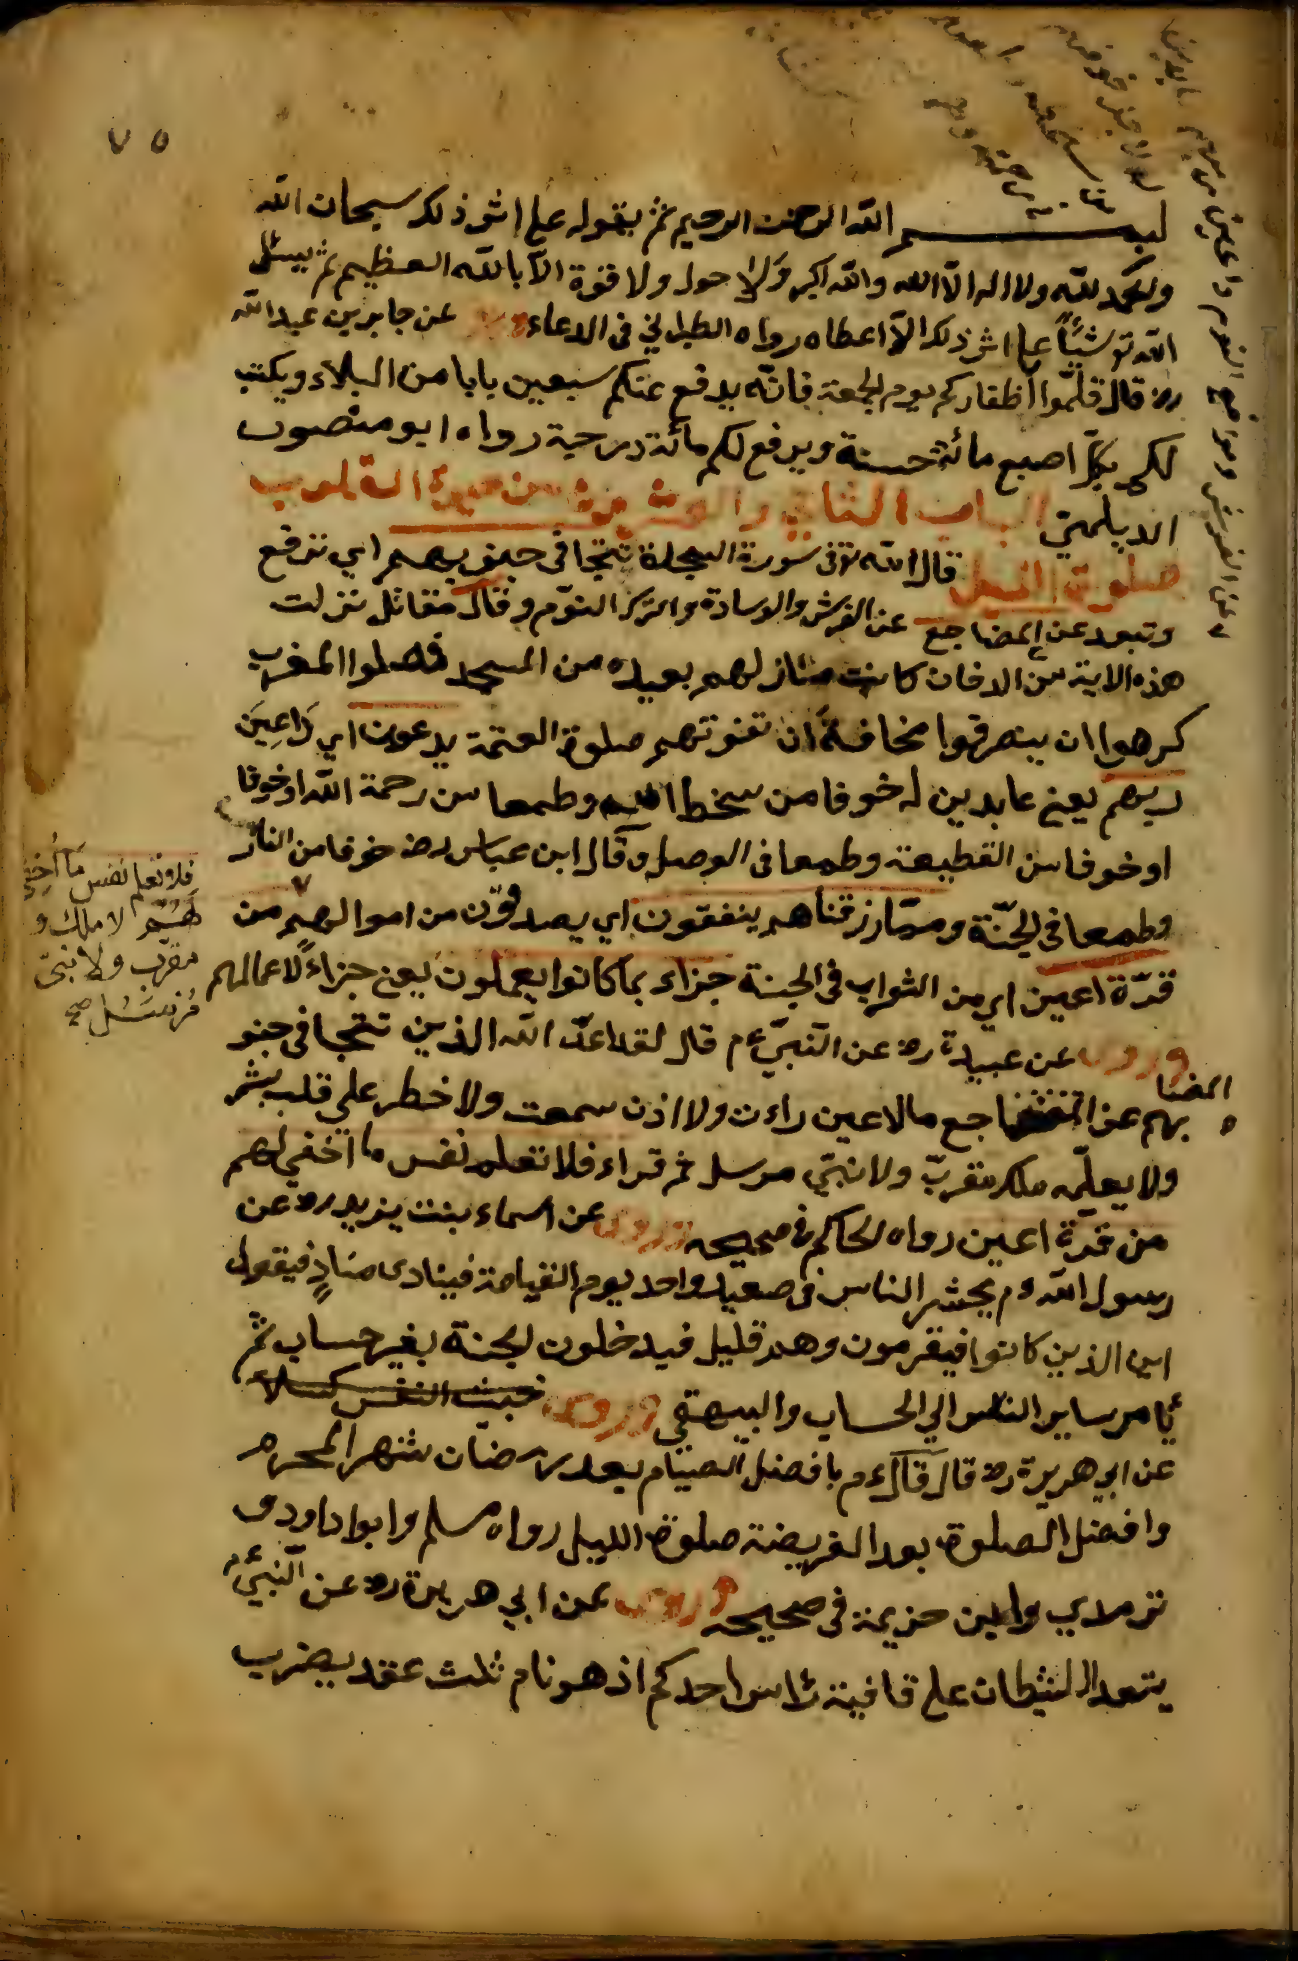 ٧٥
بسم الله الرحمن الرحيم ثم يقول على اثر ذلك سبحان الله
والحمد لله ولا اله الا الله والله اكبر ولا حول ولا قوة الا بالله العظيم ثم يسئل
الله تع شيئاً على اثر ذلك الا اعطاه رواه الطبراني فى الدعاء وروى عن جابر بن عبد الله
رض قال قلّموا اظفاركم يوم الجمعة فانّه يدفع عنكم سبعين بابا من البلاء ويكتب
لكم بكل اصبع مائة حسنة ويرفع لكم مائة درجة رواه ابو منصور
الديلمي الباب الثاني والعشرون من حيوة القلوب
صلوة الليل قال الله تع فى سورة السجدة تتجافى جنوبهم اي ترفع
وتبعد عن المضاجع عن الفرش والوسادة والترك النوم وقال مقاتل نزلت
هذه الاية من الدفان كانت منازلهم بعيده من المسجد فصلوا المغرب
كرهوا ان ينصرفوا مخافة ان تفوتهم صلوة العتمة يدعون اي دَاعِينَ
ربهم يعني عابدين له خوفا من سخط الله وطمعا من رحمة الله او خوفا
او خوفا من القطيعة وطمعا فى الوصل وقال ابن عباس رض خوفا من النار
وطمعا فى الجنّة وممّا رزقناهم ينفقون اي يصدقون من اموالهم من
قرّة اعين اي من الثواب فى الجنة جزاء بما كانوا يعملون يعني جزاءً لاعمالهم
وروى عن عبيدة رض عن النّبيّ ءم قال لقد اعدّ الله الذين تتجافى جنو
بهم عن المضاجع مالا عين راءت ولا اذن سمعت ولا خطر على قلب بشر
المضا
ولا يعلّمه ملك مقربّ ولا نبيّ مرسل ثم قراء فلا تعلم نفس ما اخفى لهم
من قرّة اعين رواه الحاكم فى صحيحه وروى عن اسماء بنت يزيد رض عن
رسول الله ءم يحشر الناس فى صعيد واحد يوم القيامة فينادى منادٍ فيقول
اين الذين كانوا فيقرمون وهم قليل فيدخلون الجنة بغير حساب ثم
يأمر ساير الناس الي الحساب والبيهقي وروى خبيث النفس كسلا
عن ابي هريرة رض قال قال ءم با فضل الصيام بعد رمضان شهر المحرم
وافضل الصلوة بعد الفريضة صلوة الليل رواه مسلم وابوا داود وى
ترمدي وابن خزيمة فى صحيحه وروى عن ابي هريرة رض عن النّبيّ ءم
يتعد الشيطان على قافية رأس احدكم اذ هو نام ثلث عقد يضرب
فلا تعلم نفس مَا أُخِفى
لَهُمْ لا ملك و
مقرّب ولا نبيّ
مُرْسَلٌ صح